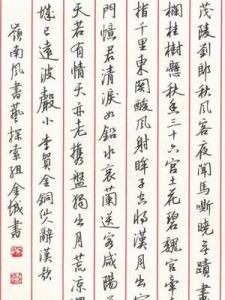 茂陵劉郎秋風客夜聞馬嘶曉無蹟畫
欄桂樹懸秋香三十六宮土花碧魏官牽
指千里東關酸風射眸子空將漢月出
門憶君清淚如鉛水衰蘭送客咸陽
天若有情天亦老攜盤獨出月荒涼
城已遠波聲小 李賀金銅仙人辭漢歌
嶺南風書藝探索組金城書